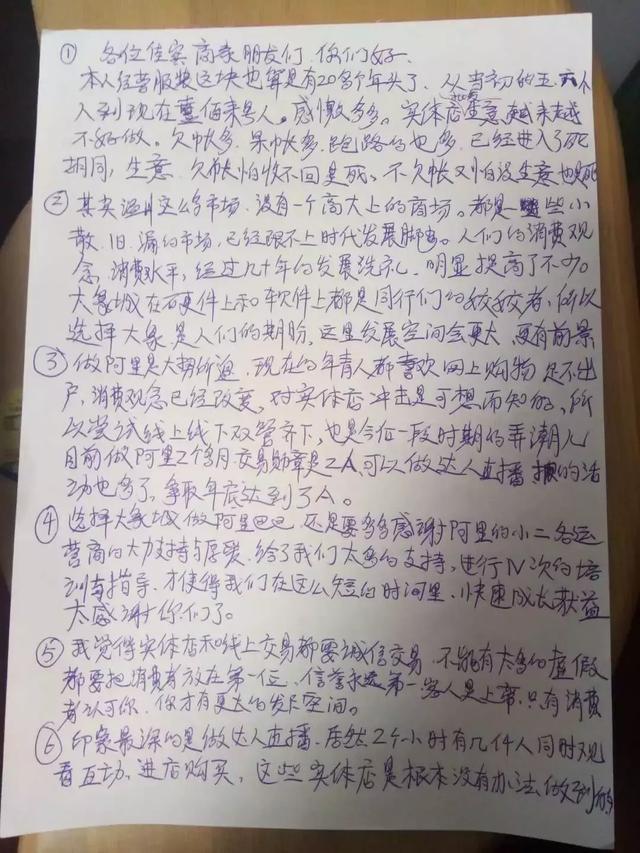 ① 各位佳宾 商亲朋友们 你们好.
本人经营服装这块也算是有20多个年头了、从当初的五、六个
人到现在壹佰来号人。感慨多多。实体店生意越来越
不好做。欠帐多、呆帐多、跑路的也多、已经进入了死
胡同，生意、欠帐怕收不回是死、不欠帐又怕没生意也是死
② 其实温州这么多市场、没有一个高大上的商场。都是一些小
散、旧、漏的市场、已经跟不上时代发展脚步。人们的消费观
念、消费水平，经过几十年的发展洗礼、明显提高了不少。
大象城在硬件上和软件上都是同行们的姣姣者，所以
选择大象是人们的期盼、这里发展空间会更大、更有前景
③ 做阿里是大势所趋、现在的年青人都喜欢网上购物 足不出
户、消费观念已经改变、对实体店冲击是可想而知的、所
以尝试线上线下双管齐下，也是今后一段时期的弄潮儿
目前做阿里2个月.交易勋章是2A、可以做达人直播 报的活
动也多了、争取年底达到3A。
④ 选择大象城、做阿里巴巴、还是要多多感谢阿里的小二各运
营商的大力支持与厚爱、给了我们太多的支持，进行N次的培
训与指导、才使得我们在这么短的时间里、快速成长获益
太感谢你们了。
⑤ 我觉得实体店和线上交易都要诚信交易、不能有太多的虚假
都要把消费者放在第一位、信誉永远第一客人是上帝、只有消费
者认可你、你才有更大的发展空间。
⑥ 印象最深的是做达人直播、居然2个小时有几仟人同时观
看互动、进店购买、这些实体店是根本没有办法做到的